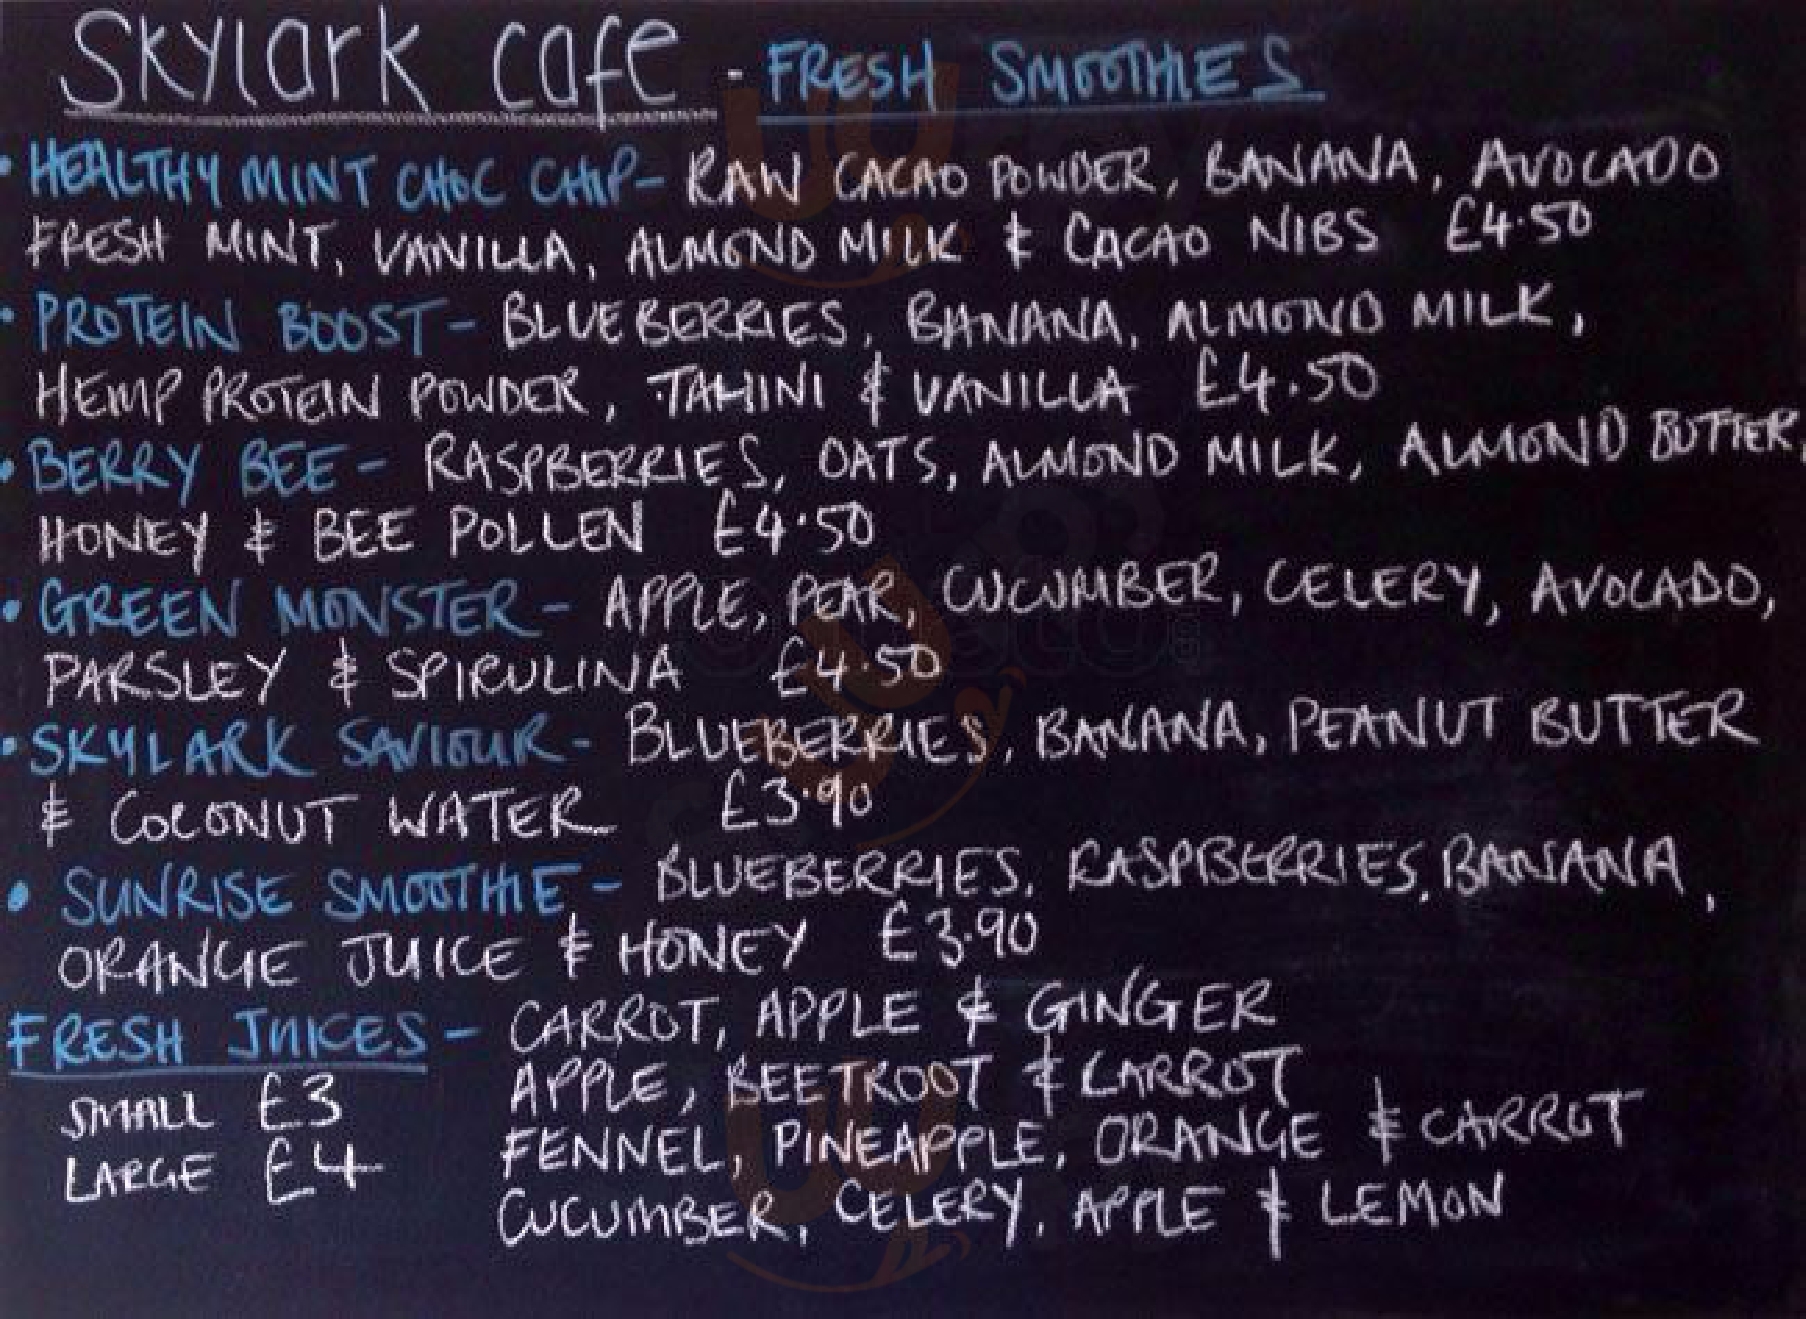 Skylark cafe - FRESH SMOOTHIES
• HEALTHY MINT CHOC CHIP - RAW CACAO POWDER, BANANA, AVOCADO
FRESH MINT, VANILLA, ALMOND MILK & CACAO NIBS £4.50
• PROTEIN BOOST - BLUEBERRIES, BANANA, ALMOND MILK,
HEMP PROTEIN POWDER, TAHINI & VANILLA £4.50
• BERRY BEE - RASPBERRIES, OATS, ALMOND MILK, ALMOND BUTTER,
HONEY & BEE POLLEN £4.50
• GREEN MONSTER - APPLE, PEAR, CUCUMBER, CELERY, AVOCADO,
PARSLEY & SPIRULINA £4.50
• SKYLARK SAVIOUR - BLUEBERRIES, BANANA, PEANUT BUTTER
& COCONUT WATER £3.90
• SUNRISE SMOOTHIE - BLUEBERRIES, RASPBERRIES, BANANA,
ORANGE JUICE & HONEY £3.90
FRESH JUICES - CARROT, APPLE & GINGER
SMALL £3 APPLE, BEETROOT & CARROT
LARGE £4 FENNEL, PINEAPPLE, ORANGE & CARROT
CUCUMBER, CELERY, APPLE & LEMON